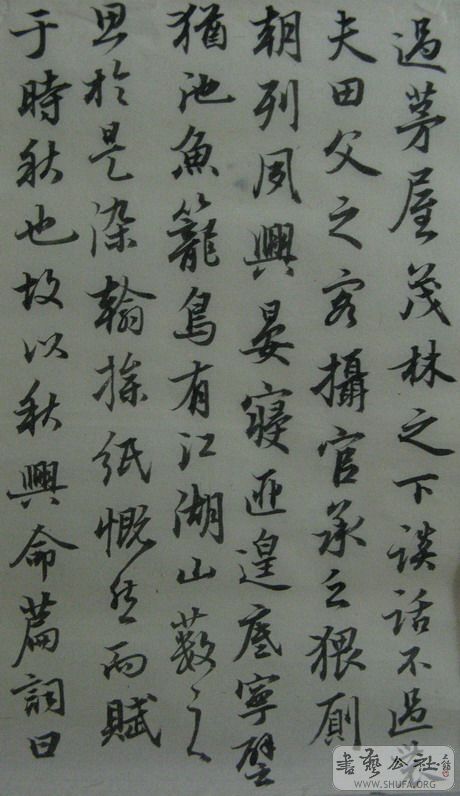 過茅屋茂林之下談話不過農
夫田父之客攝官承乏猥厠
朝列夙興晏寢匪遑底寧譬
猶池魚籠鳥有江湖山藪之
思於是染翰操紙慨然而賦
于時秋也故以秋興命篇詞曰
書藝公社
WWW.SHUFA.ORG